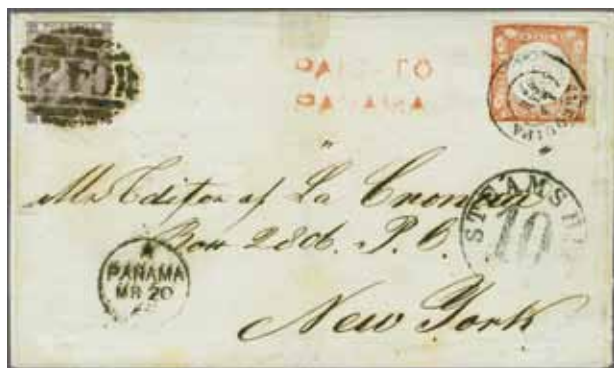 PAID TO
PANAMA
AREQUIPA
Mr Editor of La Cronica
Box 286. P. O.
New York
STEAMSHIP
10
A
PANAMA
MR 20